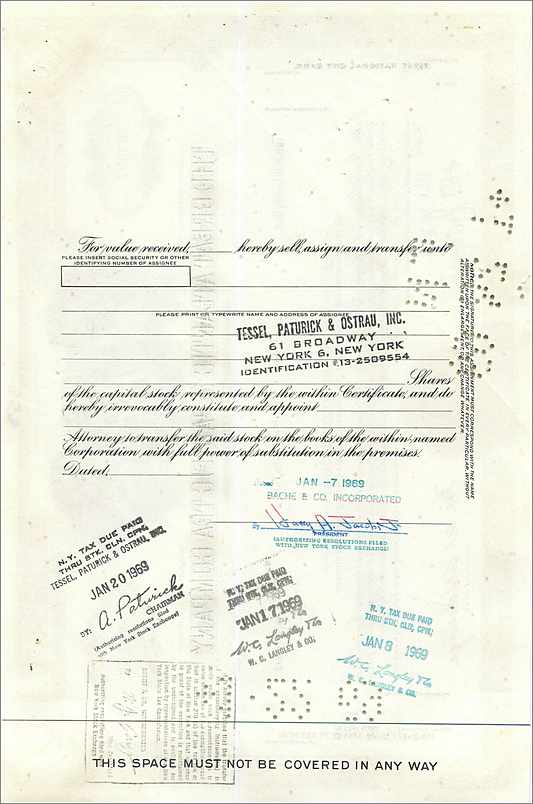 For value received, hereby sell, assign and transfer unto
PLEASE INSERT SOCIAL SECURITY OR OTHER
IDENTIFYING NUMBER OF ASSIGNEE
NOTICE: THE SIGNATURE TO THIS ASSIGNMENT MUST CORRESPOND WITH THE NAME
AS WRITTEN UPON THE FACE OF THE CERTIFICATE IN EVERY PARTICULAR, WITHOUT
ALTERATION OR ENLARGEMENT OR ANY CHANGE WHATEVER.
PLEASE PRINT OR TYPEWRITE NAME AND ADDRESS OF ASSIGNEE
TESSEL, PATURICK & OSTRAU, INC.
61 BROADWAY
NEW YORK 6, NEW YORK
IDENTIFICATION #13-2509554
Shares
of the capital stock represented by the within Certificate, and do
hereby irrevocably constitute and appoint
Attorney to transfer the said stock on the books of the within named
Corporation with full power of substitution in the premises.
Dated,
JAN -7 1969
BACHE & CO. INCORPORATED
By Harry A. Jacobs Jr
PRESIDENT
(AUTHORIZING RESOLUTIONS FILED
WITH NEW YORK STOCK EXCHANGE)
N. Y. TAX DUE PAID
THRU STK. CLN. CPN.
TESSEL, PATURICK & OSTRAU, INC.
JAN 20 1969
BY: A. Paturick
CHAIRMAN
(Authorizing resolutions filed
with New York Stock Exchange)
N. Y. TAX DUE PAID
THRU STK. CLN. CPN.
JAN 17 1969
W.C. Langley & Co
W. C. LANGLEY & CO.
N. Y. TAX DUE PAID
THRU STK. CLR. CPN.
JAN 8 1969
W.C. Langley & Co
W. C. LANGLEY & CO.
THIS SPACE MUST NOT BE COVERED IN ANY WAY